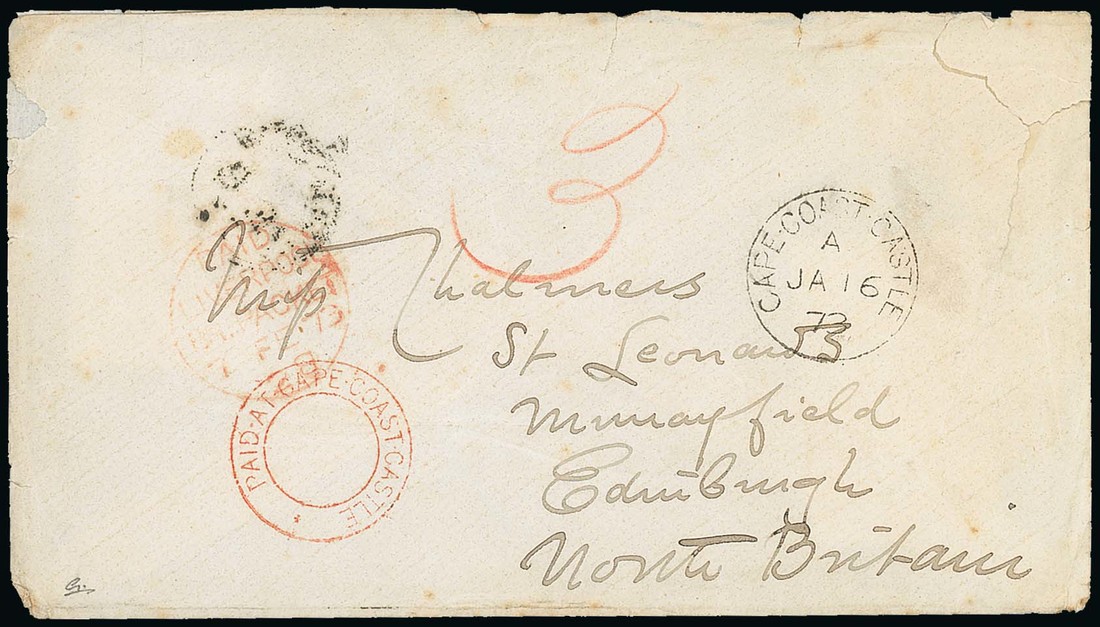 3
CAPE·COAST·CASTLE
A
JA 16
73
PAID
LIVERPOOL
PAID·AT·CAPE·COAST·CASTLE
Miss Chalmers
St Leonards
Murrayfield
Edinburgh
North Britain